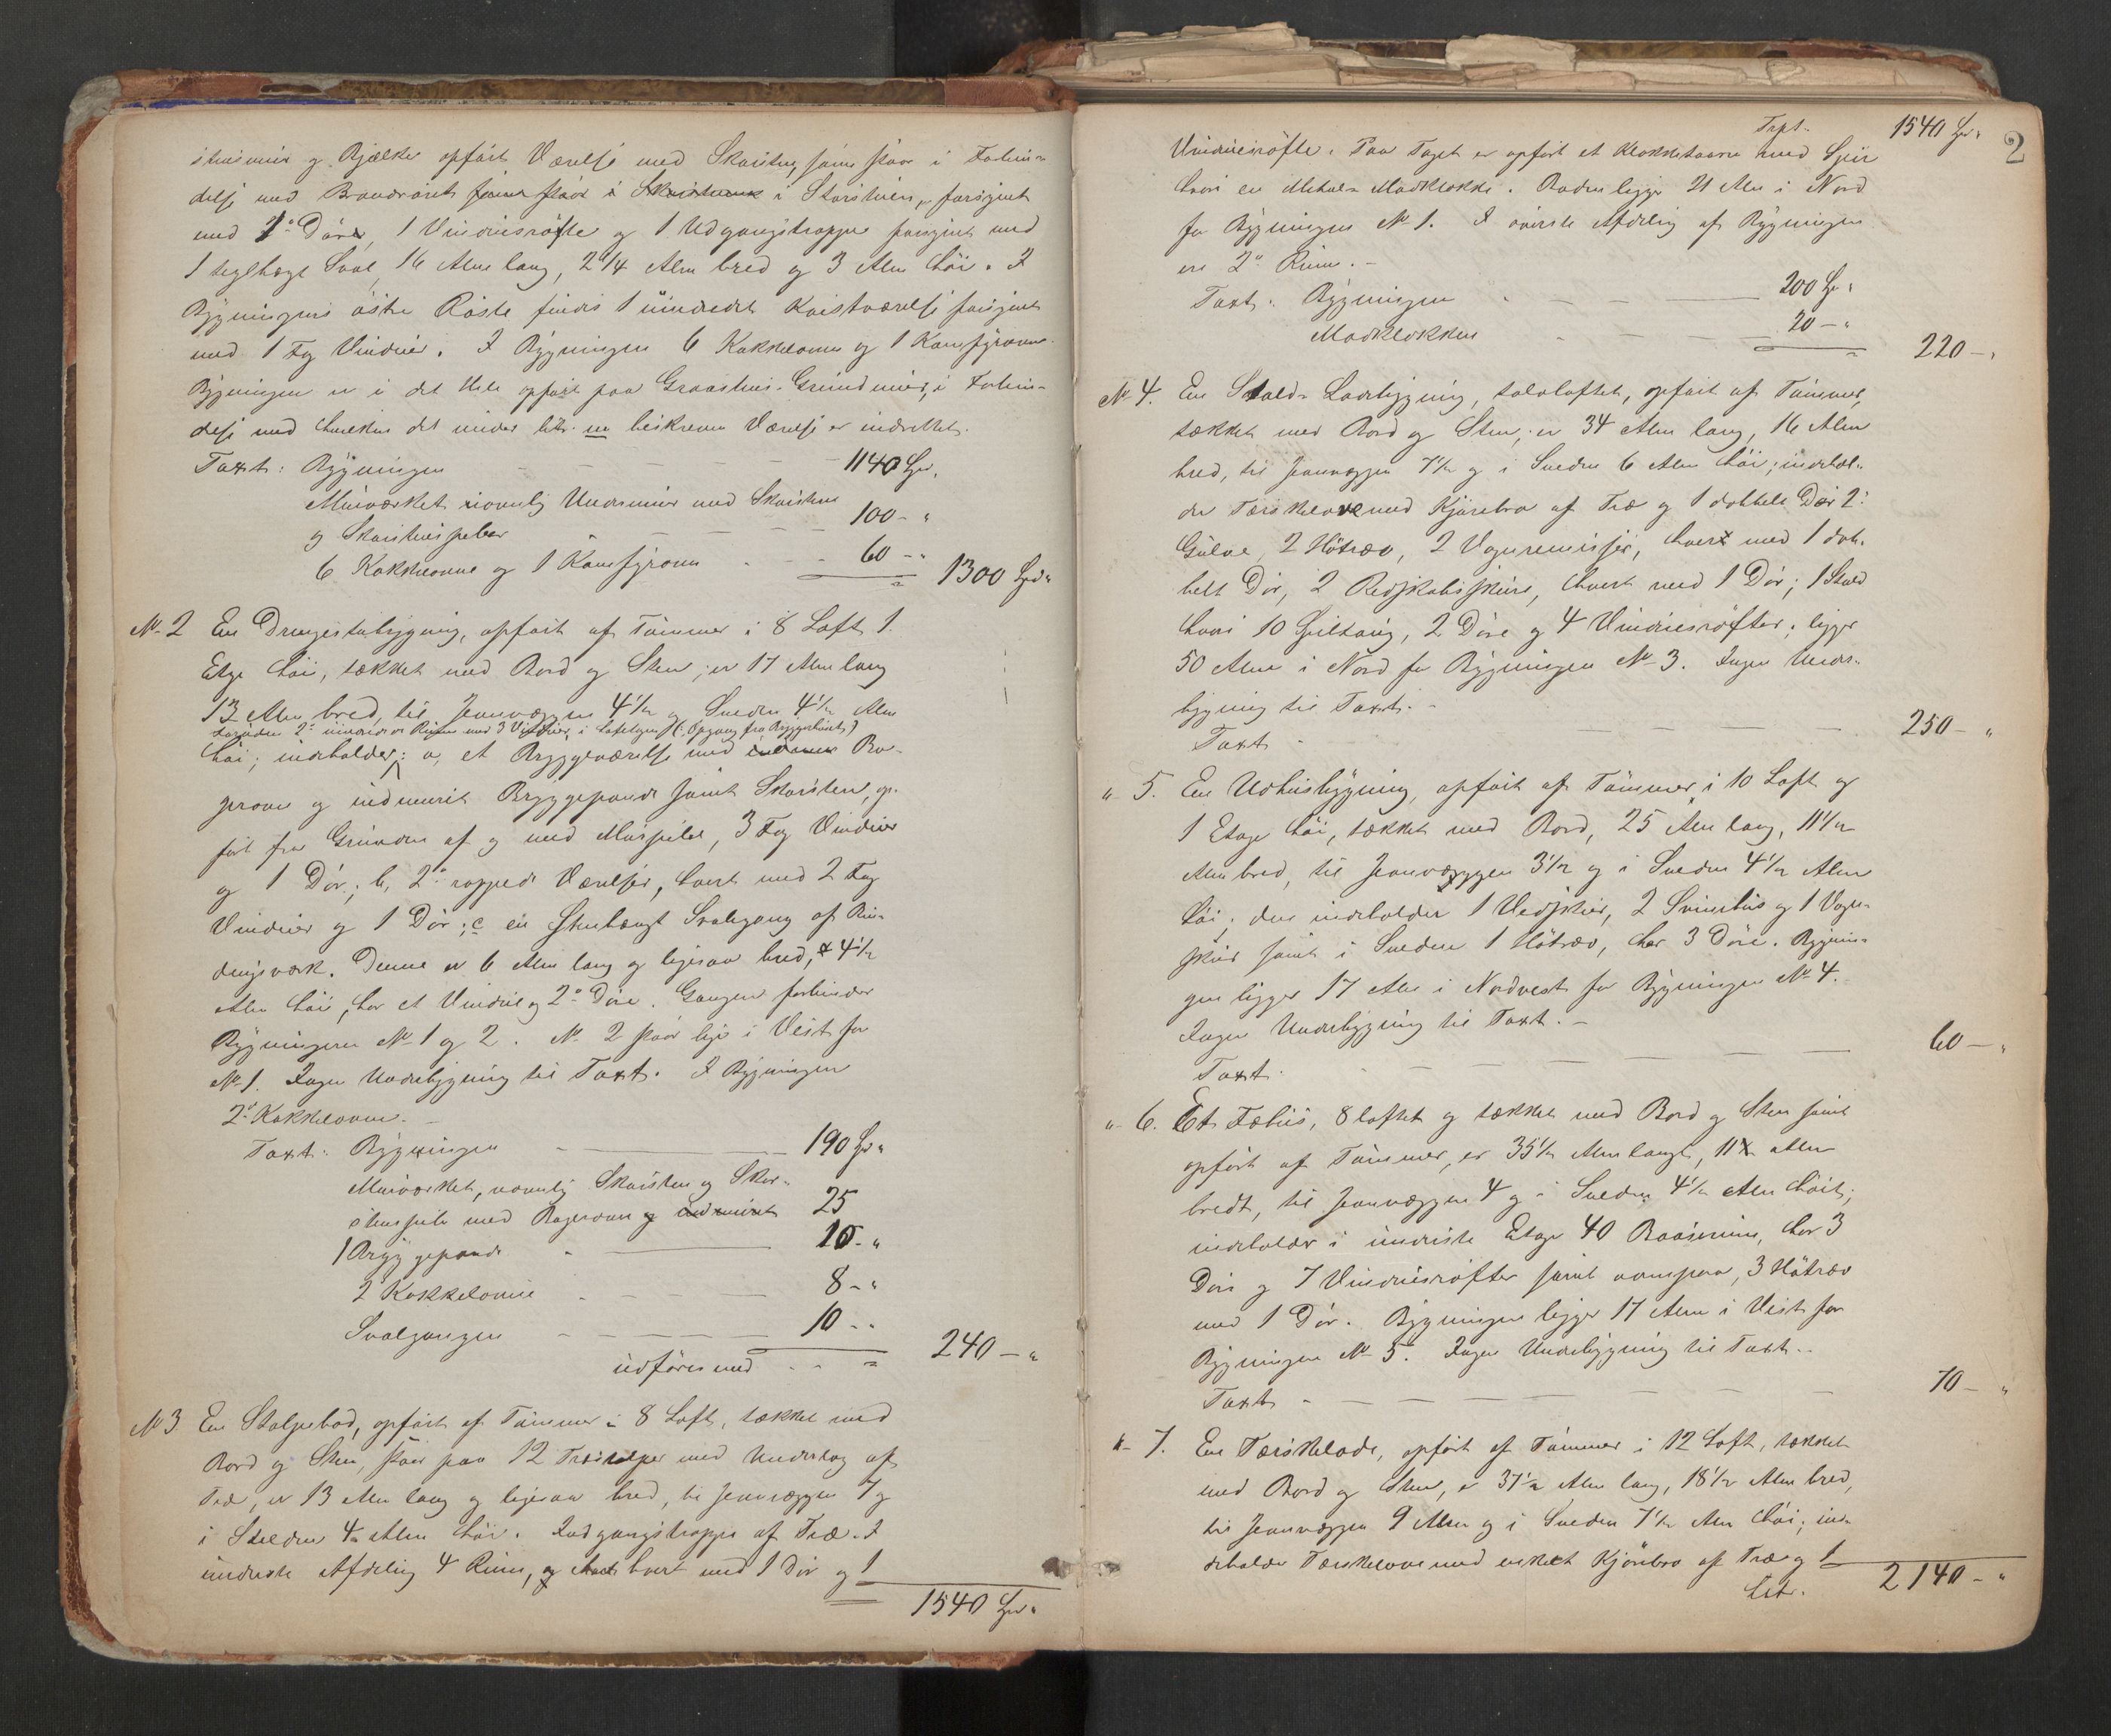 stensmur og Bjælker opført Værelse med Skorsten, som staar i Forbin-
delse med Brandrøret som staar i Skorstenene i Storstuen, forsynet
med 1 Dør, 1 Vinduesrøfte og 1 Udgangstrappe forsynet med
1 teglhængt Sval, 16 Alen lang, 2 1/4 Alen bred og 3 Alen høi. I
Bygningens østre Røste findes 1 indredet Kvistværelse forsynet
med 1 Fag Vinduer. I Bygningen 6 Kakkelovne og 1 Komfyrovn.
Bygningen er i det Hele opført paa Graastens-Grundmur, i Forbin-
delse med hvilken det under litr. m beskrevne Værelse er indrettet.
Taxt: Bygningen — 1140 Spd.
Murværket navnlig Undermur med Skorsten
og Skorstenspiber — 100 - "
6 Kakkelovne og 1 Komfyrovn — 60 - " = 1300 Spd "
No 2 En Drengestubygning, opført af Tømmer i 8 Loft 1.
Etage høi, tækket med Bord og Sten; er 17 Alen lang
13 Alen bred, til Jevnvæggen 4 1/2 og Sveden 4 1/2 Alen
desuden 2de indredede Rum med 3 Vinduer i Loftetagen (: Opgang fra Bryggerhuset)
høi; indeholder: a, et Bryggeværelse med Ba-
gerovn og indmuret Bryggepande samt Skorsten, op-
ført fra Grunden af og med Murpibe, 3 Fag Vinduer
og 1 Dør; b, 2de Værelser, hvert med 2 Fag
Vinduer og 1 Dør; c en Svalegang af Bin-
dingsværk. Denne er 6 Alen lang og ligesaa bred, 4 1/2
Alen høi, har et Vindue og 2de Døre. Gangen forbinder
Bygningerne No 1 og 2. No 2 staar lige i Vest for
No 1. Ingen Underbygning til Taxt. I Bygningen
2de Kakkelovne. -
Taxt: Bygningen — 190 Spd "
Murværket, navnlig Skorsten og Skor-
stenspibe med Bagerovn og indmuret 25
1 Bryggepande — 10 - "
2 Kakkelovne — 8 - "
Svalgangen — 10 - "
udføres med = 240 — "
No 3 En Stolpebod, opført af Tømmer i 8 Loft, tækket med
Bord og Sten, staar paa 12 Træstolper med Underlag af
Træ, er 13 Alen lang og ligesaa bred, til Jevnvæggen 7 og
i Sveden 4 Alen høi. Indgangstrappe af Træ. I
underste Afdeling 4 Rum, hvert med 1 Dør og 1
1540 Spd "
Trpt. 1540 Spd " 2
Vinduesrøfte. Paa Taget er opført et Klokketaarn med Spir
hvori en Metal-Madklokke. Boden ligger 21 Alen i Nord
for Bygningen No 1. I øverste Afdeling af Bygningen
ere 2de Rum. -
Taxt: Bygningen — 200 Spd "
Madklokken — 20 - " = 220 - "
No 4. En Stald- Ladebygning, tolvloftet, opført af Tømmer,
tækket med Bord og Sten; er 34 Alen lang, 16 Alen
bred, til Jevnvæggen 7 1/2 og i Sveden 6 Alen høi; indehol-
der Tærskelove med Kjørebro af Træ og 1 dobbelt Dør 2
Gulve, 2 Høtræv, 2 Vognremisser, hver med 1 dob-
belt Dør, 2 Redskabsskure, hvert med 1 Dør; 1 Stald
hvori 10 Spiltaug, 2 Døre og 4 Vinduesrøfter; ligger
50 Alen i Nord for Bygningen No 3. Ingen Under-
bygning til Taxt. -
Taxt — 250 - "
" 5. En Udhusbygning, opført af Tømmer i 10 Loft og
1 Etage høi, tækket med Bord, 25 Alen lang, 11 1/2
Alen bred, til Jevnvæggen 3 1/2 og i Sveden 4 1/2 Alen
høi; den indeholder 1 Vedskur, 2 Svinehus og 1 Vogn-
skur samt i Sveden 1 Høtræv, har 3 Døre. Bygnin-
gen ligger 17 Alen i Nordvest for Bygningen No 4.
Ingen Underbygning til Taxt. -
Taxt. — 60 - "
" 6. Et Fæhus, 8 loftet og tækket med Bord og Sten samt
opført af Tømmer, er 35 1/2 Alen langt, 11 Alen
bredt, til Jevnvæggen 4 og i Sveden 4 1/2 Alen høit;
indeholder i underste Etage 40 Baaserum, har 3
Døre og 7 Vinduesrøfter samt ovenpaa, 3 Høtræv
med 1 Dør. Bygningen ligger 17 Alen i Vest for
Bygningen No 5. Ingen Underbygning til Taxt. -
Taxt — 70 - "
" 7. En Tærskelade, opført af Tømmer i 12 Loft, tækket
med Bord og Sten, er 37 1/2 Alen lang, 18 1/2 Alen bred,
til Jevnvæggen 9 Alen og i Sveden 7 1/2 Alen høi; in-
deholder Tærskelove med enkelt Kjørebro af Træ og 1
Ltr. 2140 - "